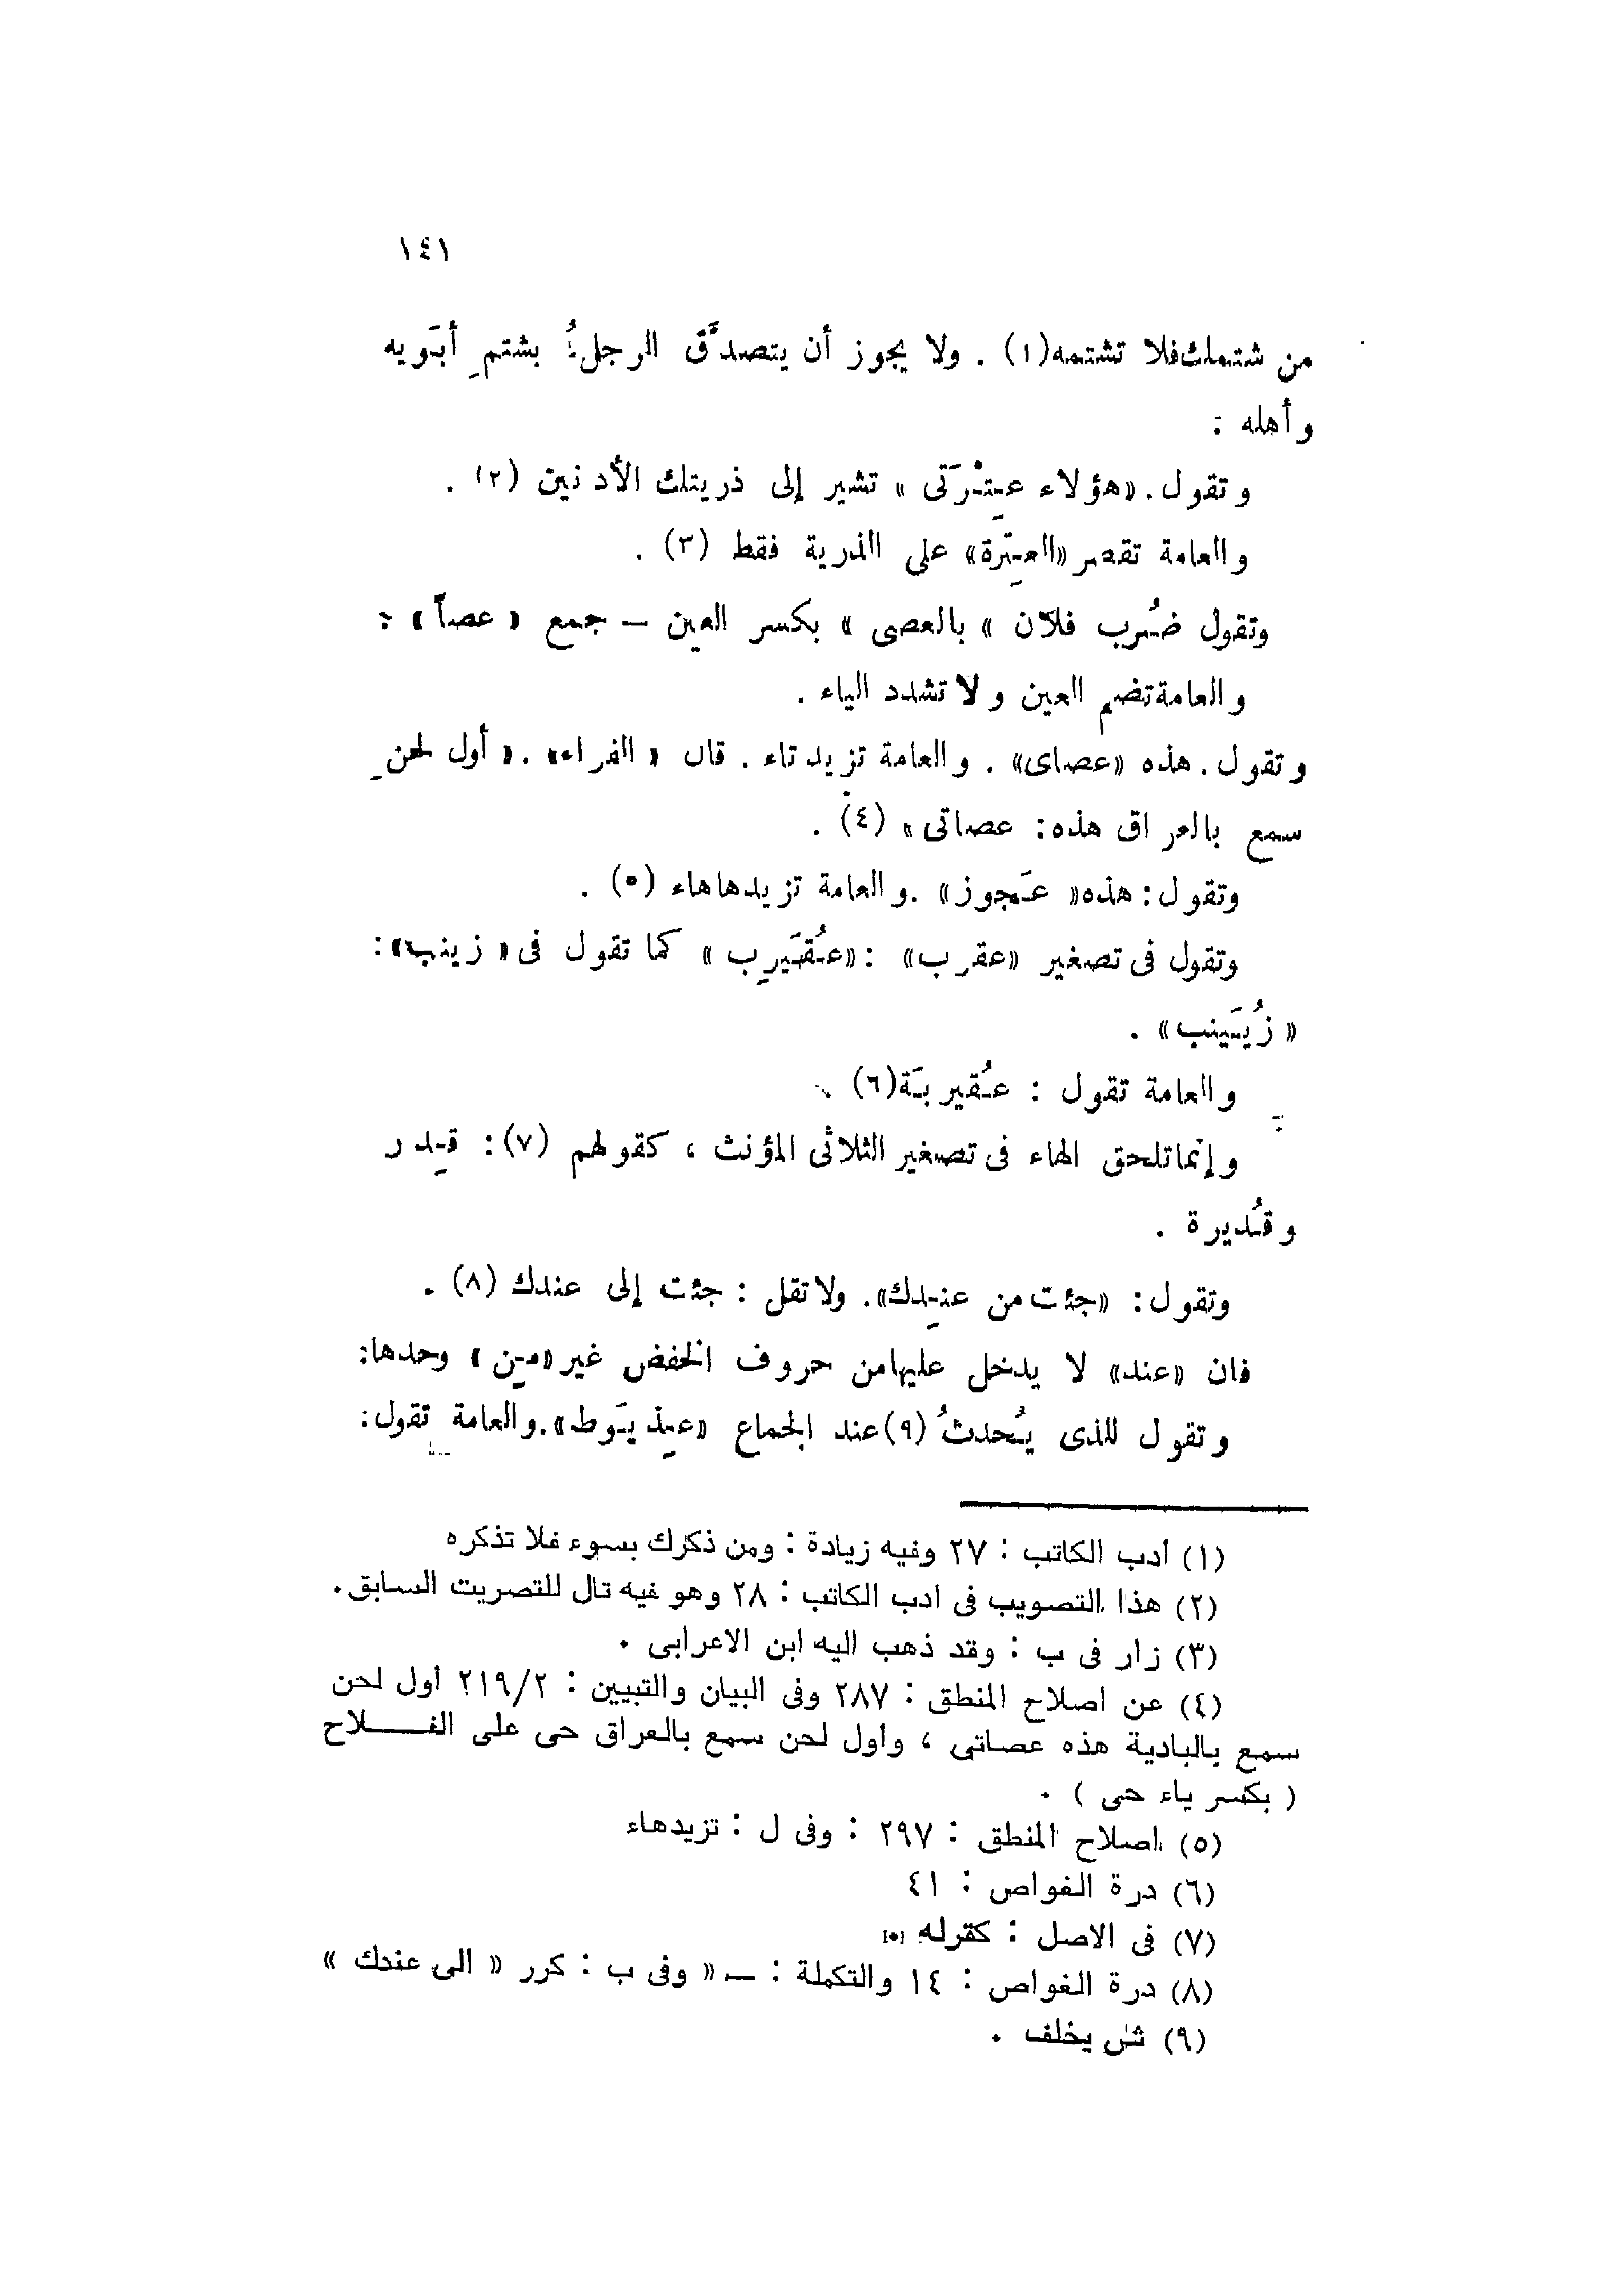 ١٤١
من شتمك فلا تشتمه(١) . ولا يجوز أن يتصدَّق الرجلُ بشتمِ أبَويه
وأهله :
وتقول. «هؤلاء عِتْرَتى» تشير إلى ذريتك الأدنين (٢) .
والعامة تقصر «العِترة» على الذرية فقط (٣) .
وتقول ضُرب فلان «بالعصى» بكسر العين – جمع «عصاً» :
والعامة تضم العين ولا تشدد الياء .
وتقول. هذه «عصاى» . والعامة تزيد تاء . قال «الفراء» . «أول لحنٍ
سمع بالعراق هذه: عصاتى» (٤) .
وتقول: هذه «عَجوز» .والعامة تزيدها هاء (٥) .
وتقول فى تصغير «عقرب» : «عُقَيرِب» كما تقول فى «زينب»:
«زُيَينب» .
والعامة تقول : عُقيربَة(٦) .
وإنما تلحق الهاء فى تصغير الثلاثى المؤنث ، كقولهم (٧): قِدر
وقُديرة .
وتقول: «جئت من عنِدك». ولا تقل : جئت إلى عندك (٨) .
فان «عند» لا يدخل عليها من حروف الخفض غير «مِن» وحدها:
وتقول للذى يُحدثُ (٩) عند الجماع «عِذيَوط».والعامة تقول:
(١) أدب الكاتب : ٢٧ وفيه زيادة : ومن ذكرك بسوء فلا تذكره
(٢) هذا التصويب فى ادب الكاتب : ٢٨ وهو فيه تال للتصريت السابق .
(٣) زار فى ب : وقد ذهب اليه ابن الاعرابى .
(٤) عن اصلاح المنطق : ٢٨٧ وفى البيان والتبيين : ٢١٩/٢ أول لحن
سمع بالبادية هذه عصاتى ، وأول لحن سمع بالعراق حى على الفـــــلاح
( بكسر ياء حى ) .
(٥) اصلاح المنطق : ٢٩٧ : وفى ل : تزيدهاء
(٦) درة الغواص : ٤١
(٧) فى الاصل : كقوله
(٨) درة الغواص : ١٤ والتكملة : – « وفى ب : كرر « الى عندك »
(٩) ش يخلف .